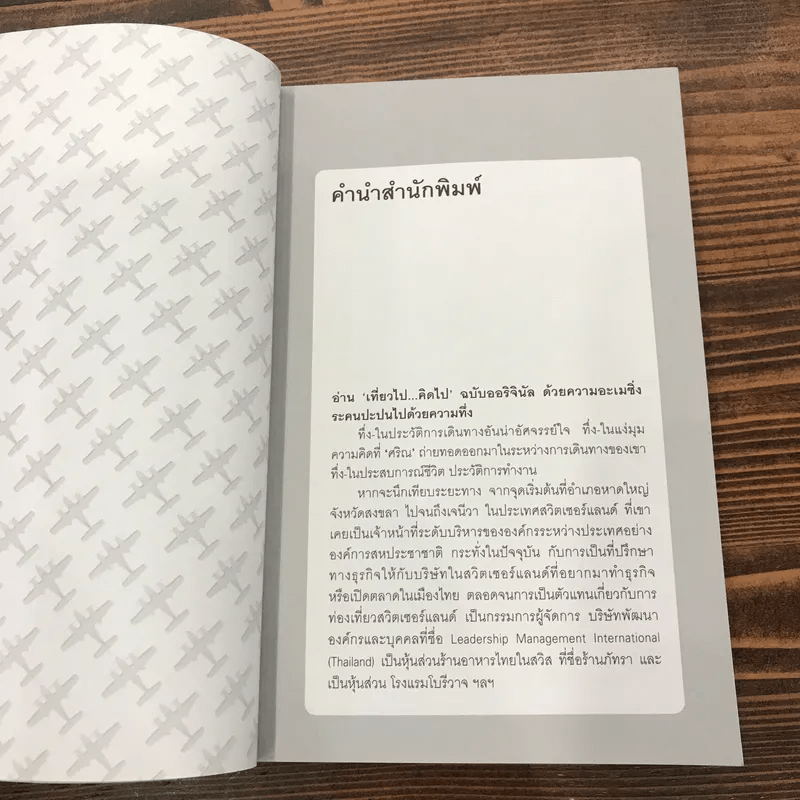 คำนำสำนักพิมพ์
อ่าน ‘เที่ยวไป...คิดไป’ ฉบับออริจินัล ด้วยความอะเมซิ่ง
ระคนปะปนไปด้วยความทึ่ง
ทึ่ง-ในประวัติการเดินทางอันน่าอัศจรรย์ใจ ทึ่ง-ในแง่มุม
ความคิดที่ ‘ศริณ’ ถ่ายทอดออกมาในระหว่างการเดินทางของเขา
ทึ่ง-ในประสบการณ์ชีวิต ประวัติการทำงาน
หากจะนึกเทียบระยะทาง จากจุดเริ่มต้นที่อำเภอหาดใหญ่
จังหวัดสงขลา ไปจนถึงเจนีวา ในประเทศสวิตเซอร์แลนด์ ที่เขา
เคยเป็นเจ้าหน้าที่ระดับบริหารขององค์กรระหว่างประเทศอย่าง
องค์การสหประชาชาติ กระทั่งในปัจจุบัน กับการเป็นที่ปรึกษา
ทางธุรกิจให้กับบริษัทในสวิตเซอร์แลนด์ที่อยากมาทำธุรกิจ
หรือเปิดตลาดในเมืองไทย ตลอดจนการเป็นตัวแทนเกี่ยวกับการ
ท่องเที่ยวสวิตเซอร์แลนด์ เป็นกรรมการผู้จัดการ บริษัทพัฒนา
องค์กรและบุคคลที่ชื่อ Leadership Management International
(Thailand) เป็นหุ้นส่วนร้านอาหารไทยในสวิส ที่ชื่อร้านภัทรา และ
เป็นหุ้นส่วน โรงแรมโบรีวาจ ฯลฯ